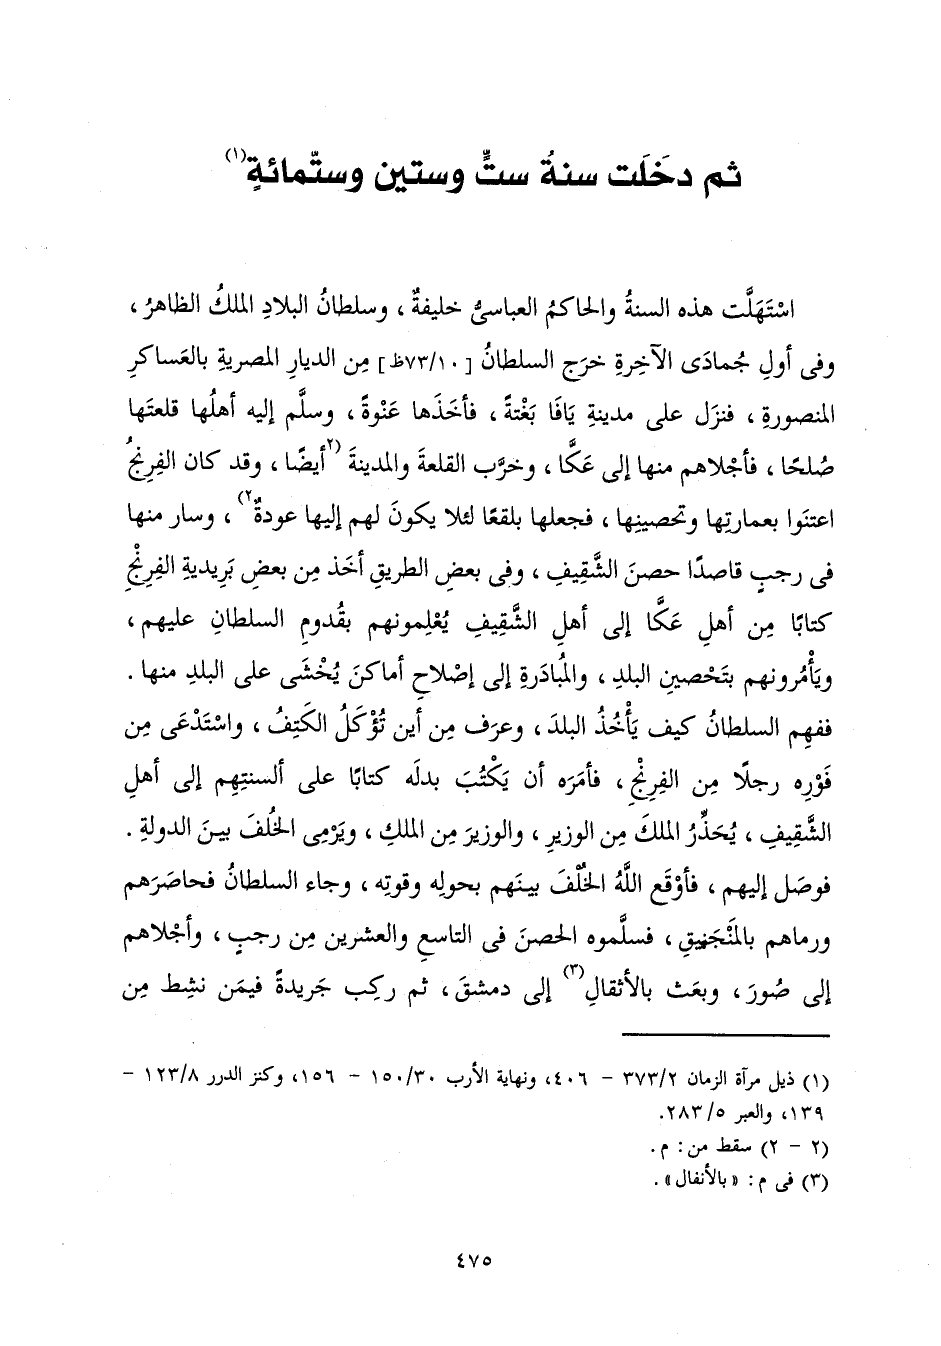 ثم دخَلَت سنةُ ستٍّ وستين وستّمائةٍ(١)
اسْتَهَلَّت هذه السنةُ والحاكمُ العباسىُّ خليفةٌ ، وسلطانُ البلادِ الملكُ الظاهرُ ،
وفى أولِ جُمادَى الآخِرةِ خرَج السلطانُ [ ٧٣/١٠ظ] مِن الديارِ المصريةِ بالعَساكرِ
المنصورةِ ، فنزَل على مدينةِ يَافَا بَغْتةً ، فأخَذَها عَنْوةً ، وسلَّم إليه أهلُها قلعتَها
صُلحًا ، فأجْلاهم منها إلى عَكَّا ، وخرَّب القلعةَ والمدينةَ (٢أيضًا ، وقد كان الفِرنجُ
اعتنَوا بعمارتِها وتحصينِها ، فجعلها بلقعًا لئلا يكونَ لهم إليها عودةٌ٢) ، وسار منها
فى رجبٍ قاصدًا حصنَ الشَّقِيفِ ، وفى بعضِ الطريقِ أخَذ مِن بعضِ بَرِيديةِ الفِرِنْجِ
كتابًا مِن أهلِ عَكَّا إلى أهلِ الشَّقِيفِ يُعْلِمونهم بقُدومِ السلطانِ عليهم ،
ويَأْمُرونهم بتَحْصينِ البلدِ ، والمُبادَرةِ إلى إصْلاحِ أماكنَ يُخْشَى على البلدِ منها .
ففهِم السلطانُ كيف يَأْخُذُ البلدَ ، وعرَف مِن أين تُؤْكَلُ الكَتِفُ ، واسْتَدْعَى مِن
فَوْرِه رجلًا مِن الفِرِنْجِ ، فأمَرَه أن يَكْتُبَ بدلَه كتابًا على ألسنتِهم إلى أهلِ
الشَّقِيفِ ، يُحَذِّرُ الملكَ مِن الوزيرِ ، والوزيرَ مِن الملكِ ، ويَرْمِى الخُلفَ بينَ الدولةِ .
فوصَل إليهم ، فأوْقَع اللَّهُ الخُلْفَ بينَهم بحولِه وقوتِه ، وجاء السلطانُ فحاصَرَهم
ورماهم بالمَنْجَنِيقِ ، فسلَّموه الحصنَ فى التاسعِ والعشرين مِن رجبٍ ، وأجْلاهم
إلى صُورَ ، وبعَث بالأثقالِ(٣) إلى دمشقَ ، ثم ركِب جَريدةً فيمَن نشِط مِن
(١) ذيل مرآة الزمان ٣٧٣/٢ – ٤٠٦، ونهاية الأرب ١٥٠/٣٠ – ١٥٦، وكنز الدرر ١٢٣/٨ –
١٣٩، والعبر ٢٨٣/٥.
(٢ – ٢) سقط من : م .
(٣) فى م : «بالأنفال» .
٤٧٥